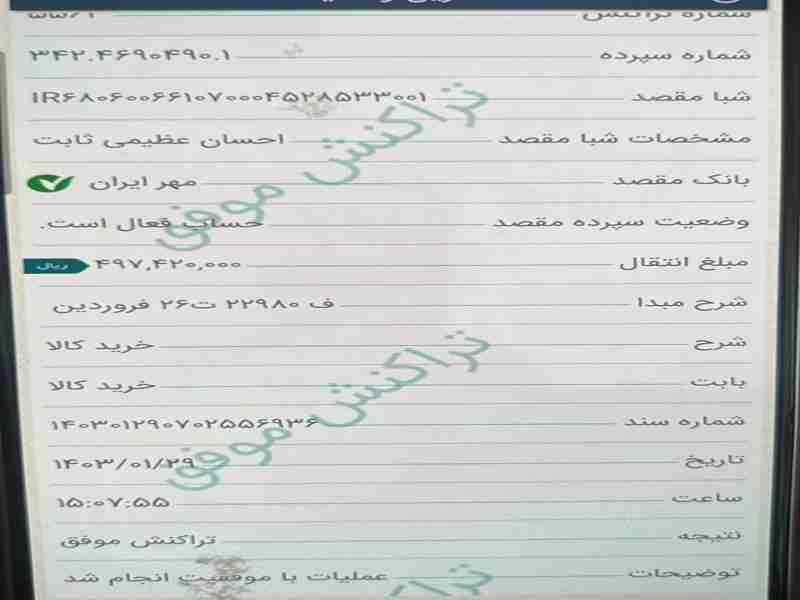 شماره تراکنش
شماره سپرده ۳۴۲.۴۶۹۰۴۹۰.۱
شبا مقصد IR۶۸۰۶۰۰۶۶۱۰۷۰۰۰۴۵۲۸۵۳۳۰۰۱
مشخصات شبا مقصد احسان عظیمی ثابت
بانک مقصد مهر ایران
وضعیت سپرده مقصد حساب فعال است.
مبلغ انتقال ۴۹۷,۴۲۰,۰۰۰ ریال
شرح مبدا ف ۲۲۹۸۰ ت۲۶ فروردین
شرح خرید کالا
بابت خرید کالا
شماره سند ۱۴۰۳۰۱۲۹۰۷۰۲۵۵۶۹۳۶
تاریخ ۱۴۰۳/۰۱/۲۹
ساعت ۱۵:۰۷:۵۵
نتیجه تراکنش موفق
توضیحات عملیات با موفقیت انجام شد
تراکنش موفق
تراکنش موفق